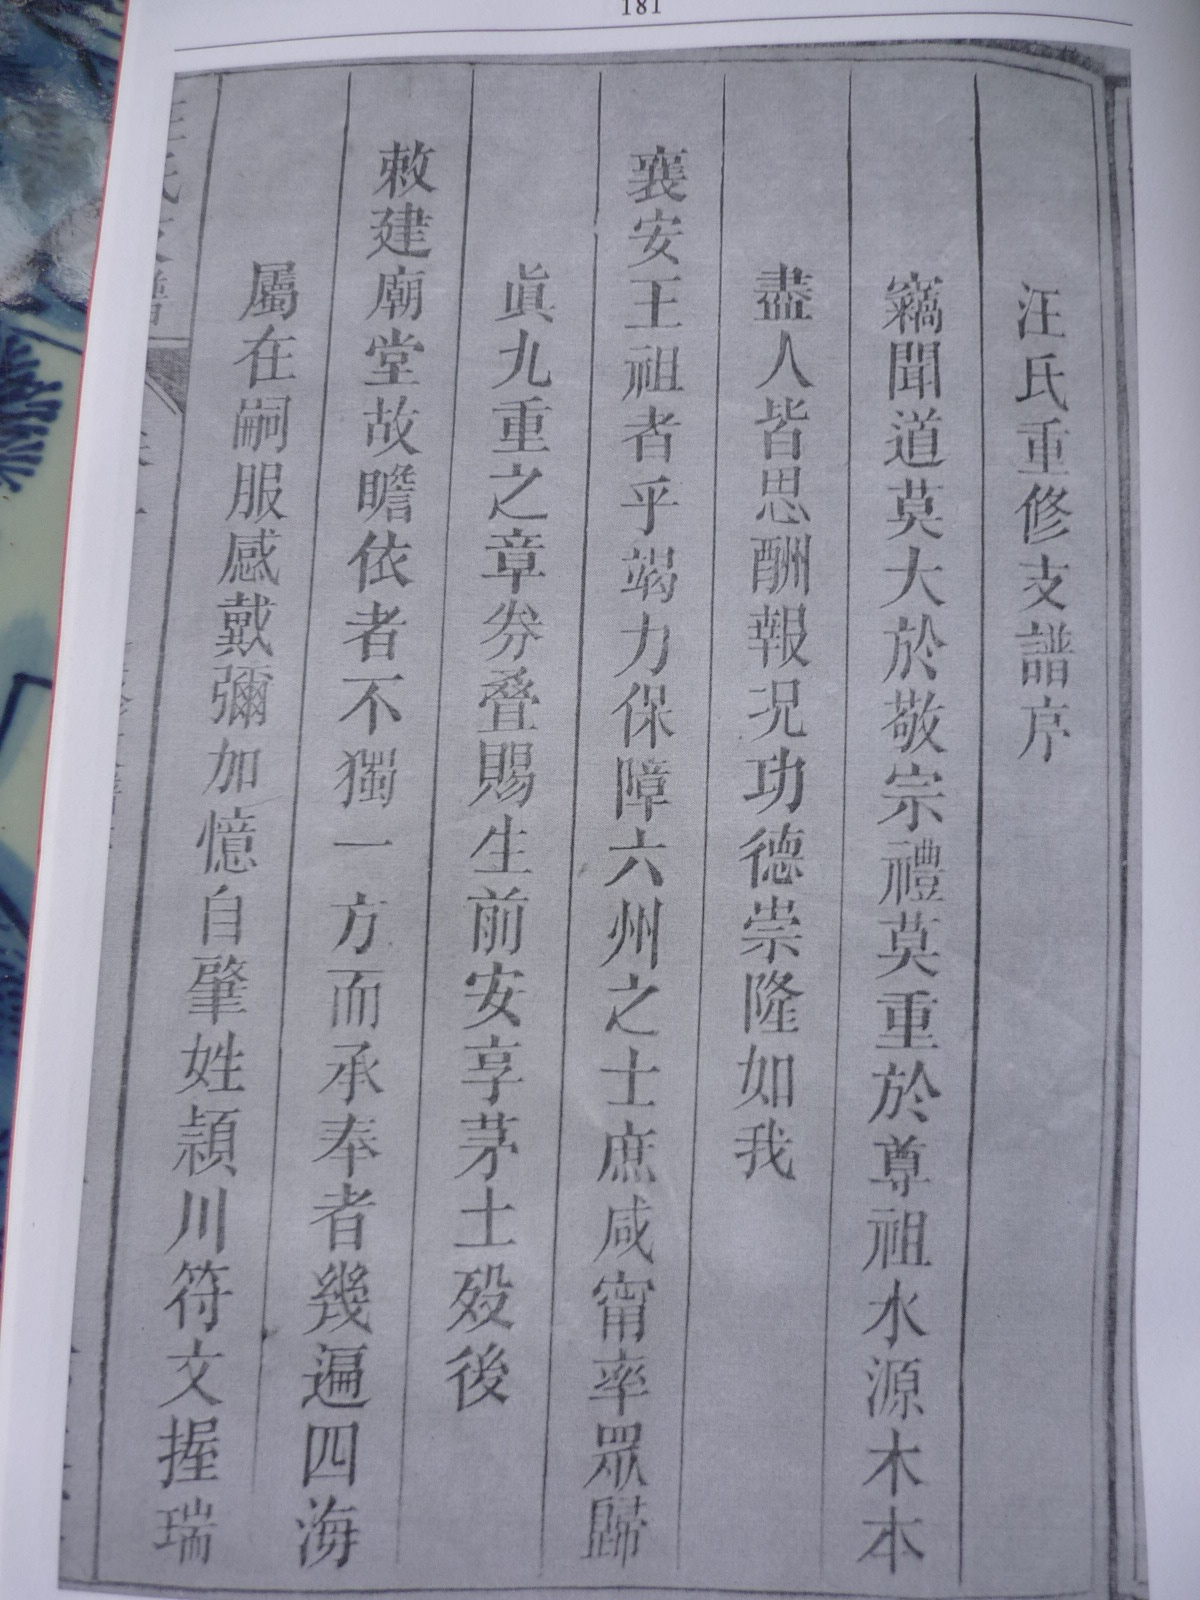 181
汪氏重修支譜序
竊聞道莫大於敬宗禮莫重於尊祖水源木本
盡人皆思酬報况功德崇隆如我
襄安王祖者乎竭力保障六州之士庶咸甯率眾歸
眞九重之章券叠賜生前安享茅土歿後
敕建廟堂故瞻依者不獨一方而承奉者幾遍四海
屬在嗣服感戴彌加憶自肇姓潁川符文握瑞